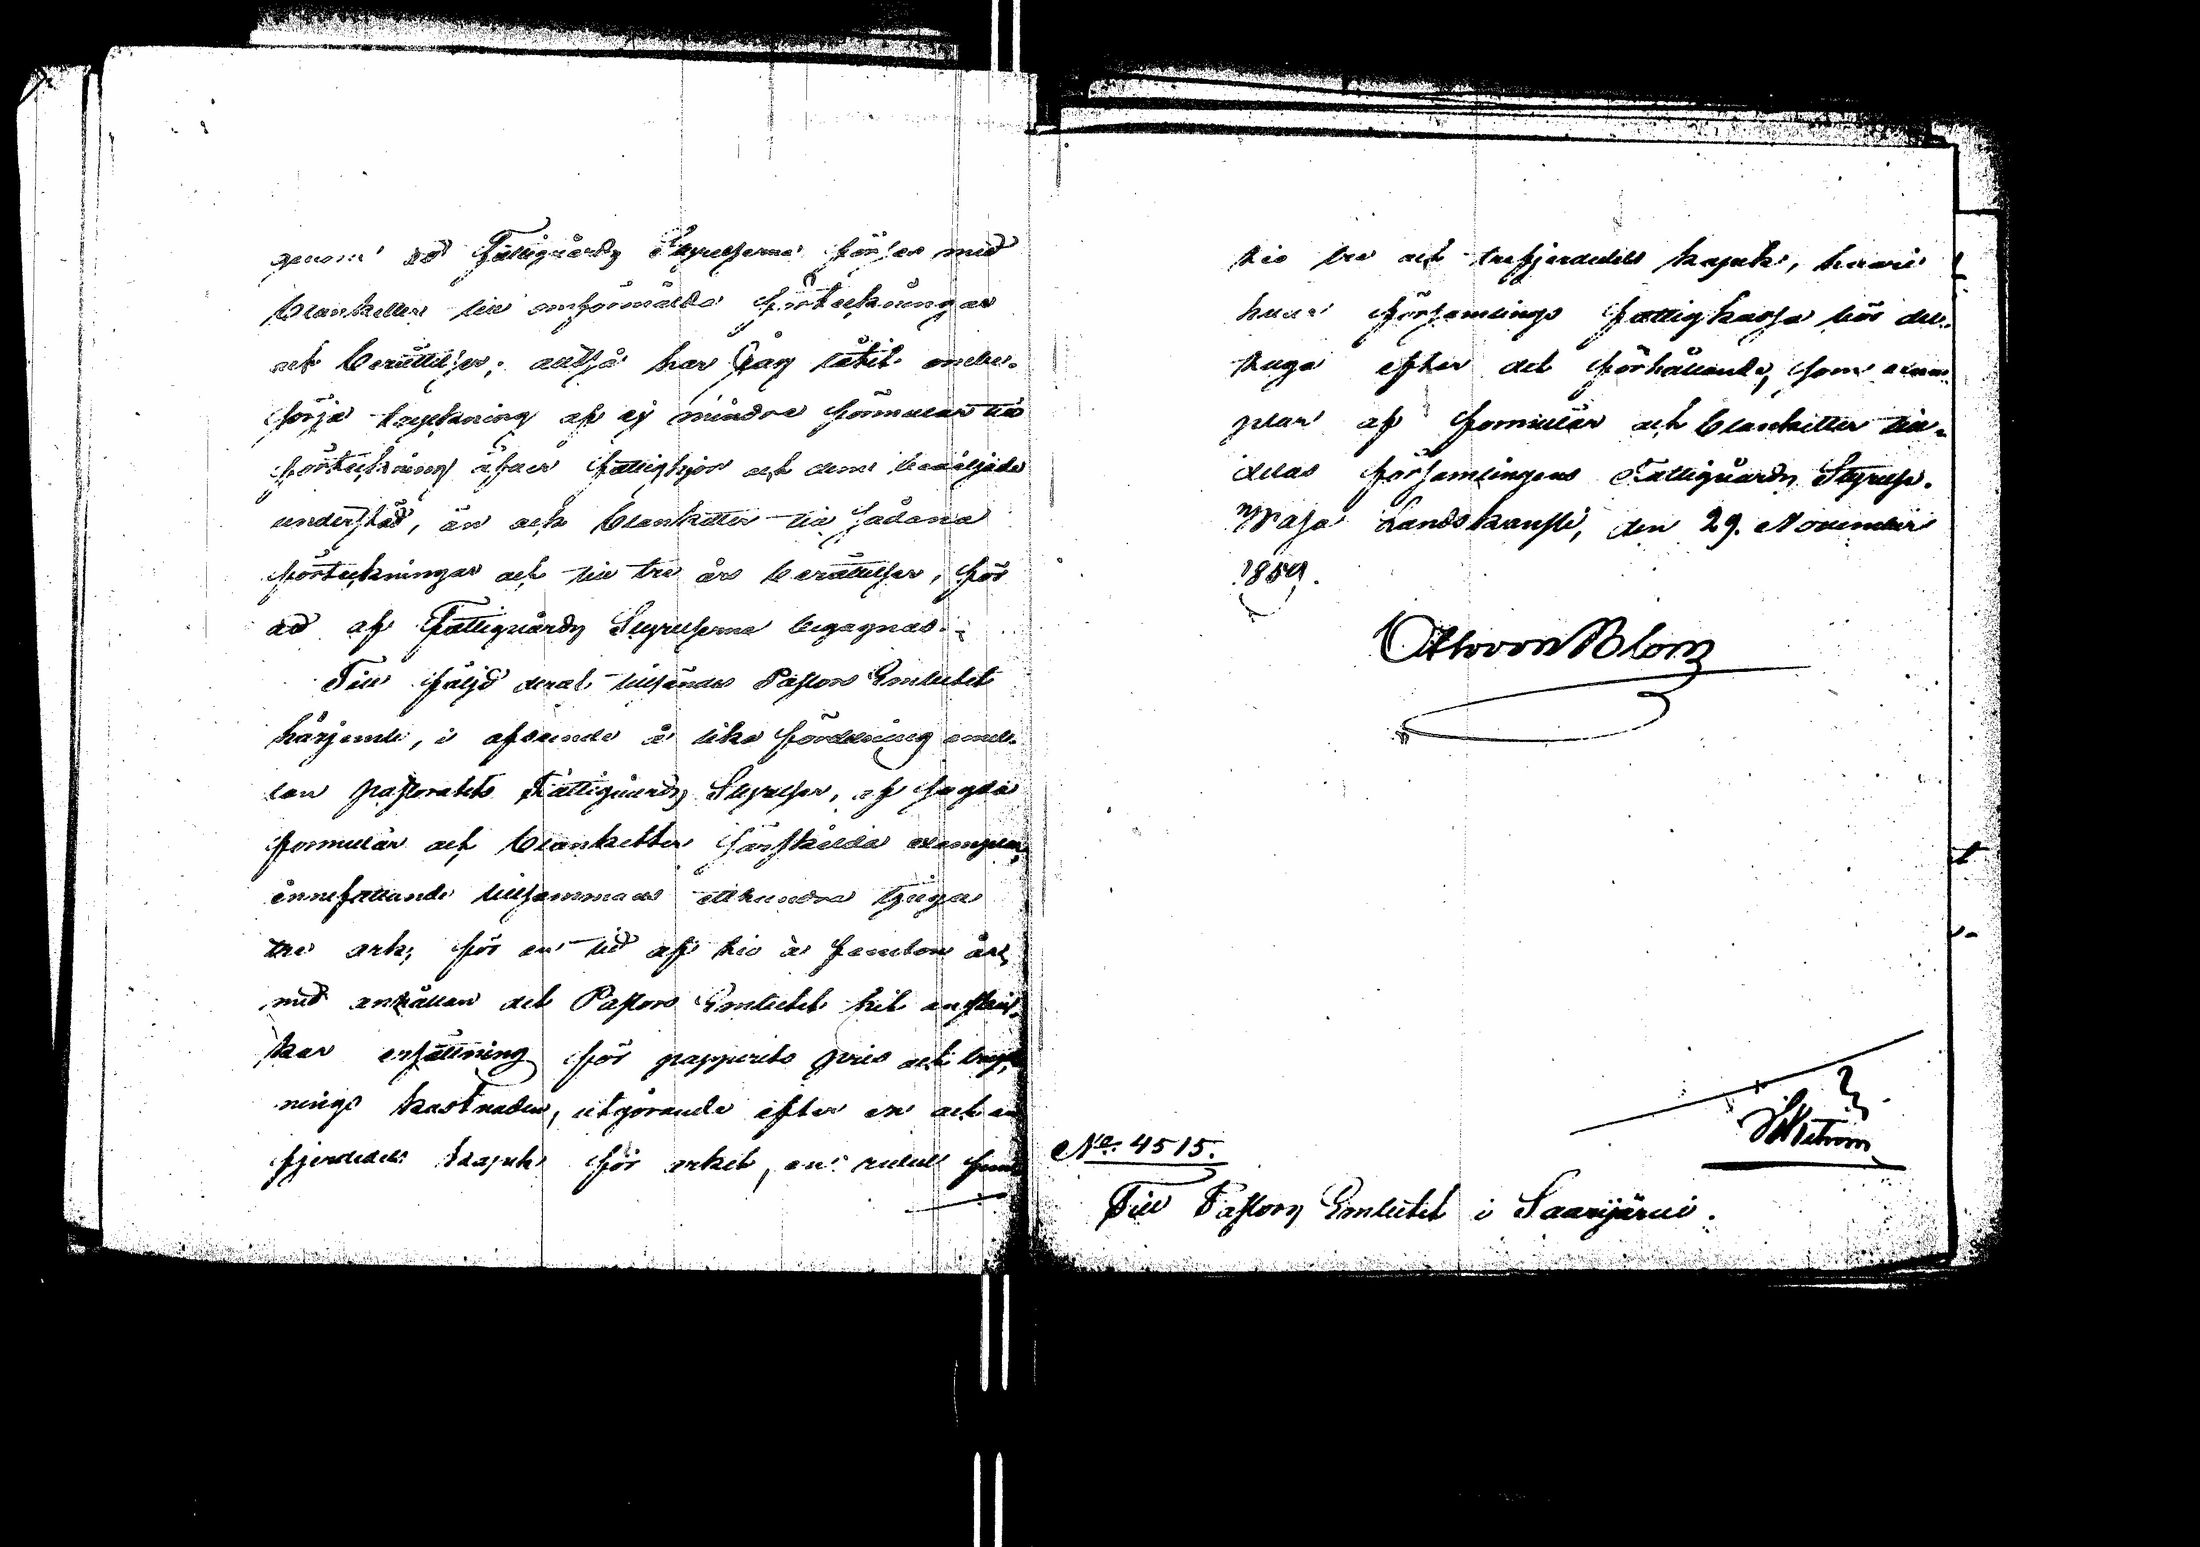 genom att Fattigvårds Styrelserne förses med
blanketter till omförmälda förteckningar
och berättelser; alltså har Jag låtit ombe-
sörja tryckning af ej mindre formulär till
förteckning öfver fattighjon och dem beviljade
understöd, än ock blanketter till sådana
förteckningar och till tre års berättelser, för
att af Fattigvårds Styrelserna begagnas.
Till följd deraf tillsändes Pastors Embetet
härjemte, i afseende å lika fördelning emel-
lan pastoratets Fattigvårds Styrelser, af sagda
formulär och blanketter särskilda exemplar,
innefattande tillsammans etthundra tjuga
tre ark, för en tid af tio à femton år,
med anhållan det Pastors Embetet hit
ersättning för papperets pris och tryck-
nings kostnaden, utgörande efter en och en
fjerdedels kopek för arket, en rubel femti
tio tre och trefjerdedels kopek, hvari
hvar församlings fattigkassa bör del-
taga efter det förhållande, som exem-
plar af formulär och blanketter till-
delas församlingens Fattigvårds Styrelse.
Wasa Landskansli, den 29. November
1854.
Otto von Blom
No. 4515.
Till Pastors Embetet i Saarijärvi.